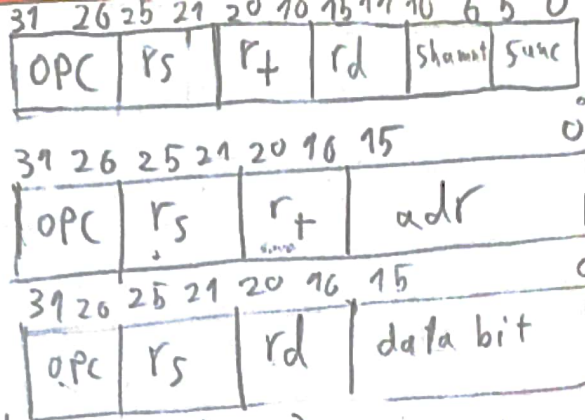 31 26 25 21 20 16 15 11 10 6 5 0
OPC rs rt rd shamnt func
31 26 25 21 20 16 15 0
OPC rs rt adr
31 26 25 21 20 16 15
OPC rs rd data bit